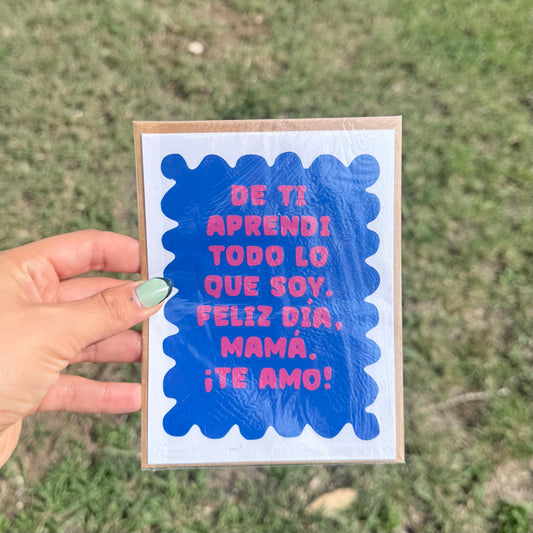 DE TI
APRENDI
TODO LO
QUE SOY.
FELIZ DÍA,
MAMÁ.
¡TE AMO!